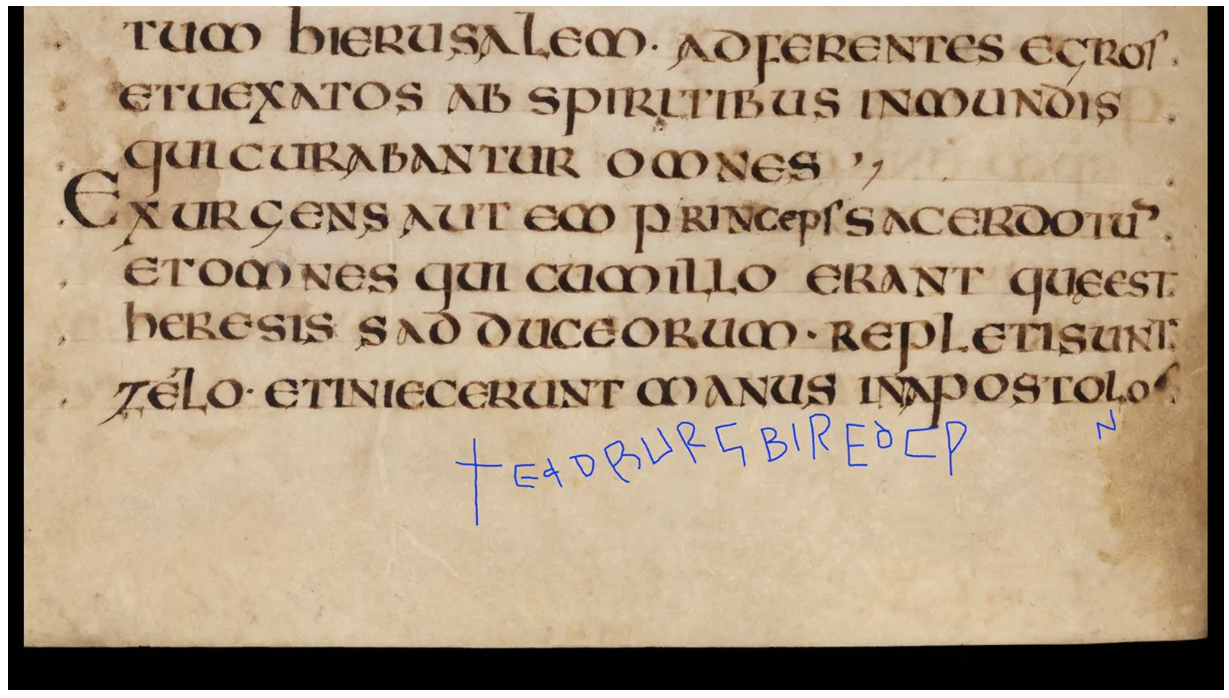 TUM hIERUSALEM. ADFERENTES EGROS
ETUEXATOS AB SPIRITIBUS INMUNDIS
QUI CURABANTUR OMNES ',
EXURGENS AUTEM PRINCEPS SACERDOTU
ETOMNES QUI CUMILLO ERANT QUEEST
hERESIS SADDUCEORUM. REPLETISUNT
ZELO. ETINIECERUNT MANUS INAPOSTOLOS
N
+EADBURG BIREĐ CP